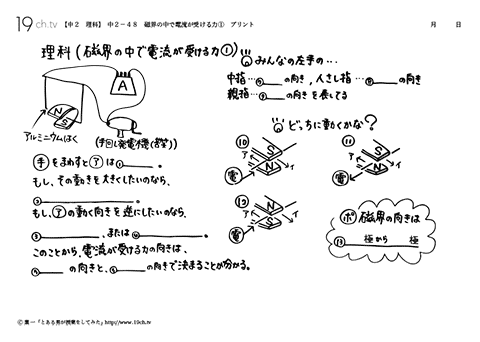 19ch.tv 【中2 理科】 中2-48 磁界の中で電流が受ける力① プリント 月 日
理科(磁界の中で電流が受ける力①)
A
N S
アルミニウムはく
(手回し発電機(若芽))
手をまわすとアは①
もし、その動きを大きくしたいのなら、
②
もし、アの動く向きを逆にしたいのなら、
③ 、または④ 。
このことから、電流が受ける力の向きは、
の向きと、⑥ の向きで決まることが分かる。
みんなの左手の…
中指… の向き, 人さし指… の向き
親指… の向きを表してる
どっちに動くかな?
⑩ S N ア イ 電
⑪ S N ア イ 電
⑫ N S ア イ 電
ポ 磁界の向きは
⑬ 極から 極
©葉一「とある男が授業をしてみた」http://www.19ch.tv